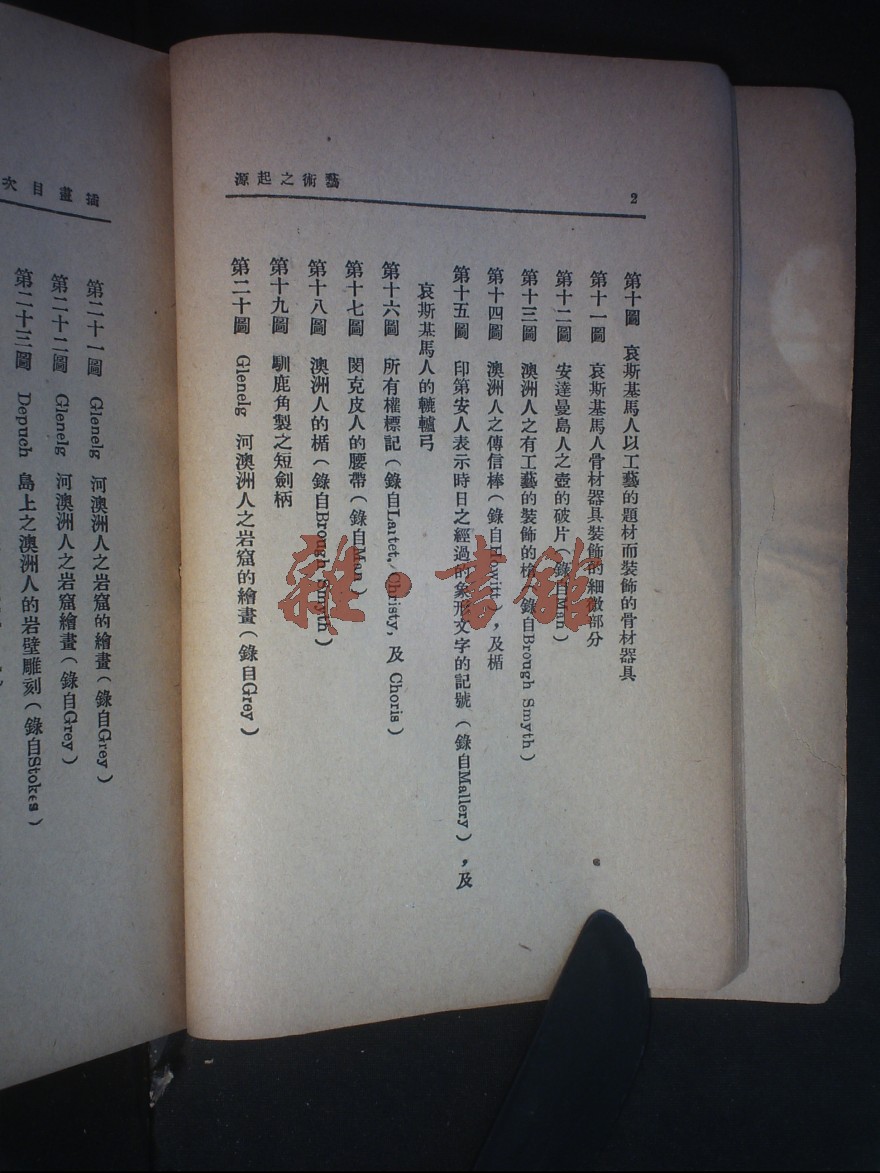 藝術之起源
2
第十圖 哀斯基馬人以工藝的題材而裝飾的骨材器具
第十一圖 哀斯基馬人骨材器具裝飾的細微部分
第十二圖 安達曼島人之壺的破片(錄自Man)
第十三圖 澳洲人之有工藝的裝飾的槍(錄自Brough Smyth)
第十四圖 澳洲人之傳信棒(錄自Howitt),及楯
第十五圖 印第安人表示時日之經過的象形文字的記號(錄自Mallery),及
哀斯基馬人的轆轤弓
第十六圖 所有權標記(錄自Lartet, Christy, 及 Choris)
第十七圖 閔克皮人的腰帶(錄自Man)
第十八圖 澳洲人的楯(錄自Brough Smyth)
第十九圖 馴鹿角製之短劍柄
第二十圖 Glenelg 河澳洲人之岩窟的繪畫(錄自Grey)
插畫目次
第二十一圖 Glenelg 河澳洲人之岩窟的繪畫(錄自Grey)
第二十二圖 Glenelg 河澳洲人之岩窟繪畫(錄自Grey)
第二十三圖 Depuch 島上之澳洲人的岩壁雕刻(錄自Stokes)
雜·書館